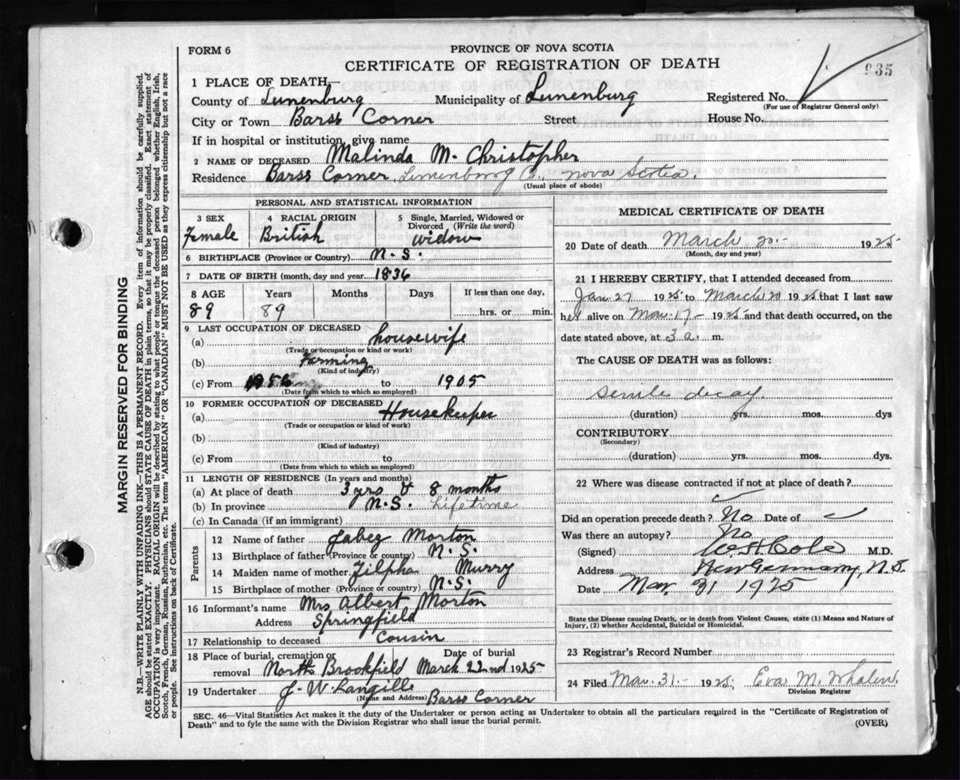 FORM 6
PROVINCE OF NOVA SCOTIA
CERTIFICATE OF REGISTRATION OF DEATH
935
1 PLACE OF DEATH—
County of Lunenburg Municipality of Lunenburg Registered No.
(For use of Registrar General only)
City or Town Barss Corner Street House No.
If in hospital or institution, give name
2 NAME OF DECEASED Malinda M. Christopher
Residence Barss Corner, Lunenburg Co., Nova Scotia.
(Usual place of abode)
PERSONAL AND STATISTICAL INFORMATION
3 SEX 4 RACIAL ORIGIN 5 Single, Married, Widowed or Divorced (Write the word)
Female British Widow
6 BIRTHPLACE (Province or Country) N.S.
7 DATE OF BIRTH (month, day and year) 1836
8 AGE Years Months Days If less than one day,
89 89 hrs. or min.
9 LAST OCCUPATION OF DECEASED
(a) housewife
(Trade or occupation or kind or work)
(b) Farming
(Kind of industry)
(c) From to 1905
(Date from which to which so employed)
10 FORMER OCCUPATION OF DECEASED
(a) Housekeeper
(Trade or occupation or kind of work)
(b)
(Kind of industry)
(c) From to
(Date from which to which so employed)
11 LENGTH OF RESIDENCE (In years and months)
(a) At place of death 3 yrs & 8 months
(b) In province N.S. Lifetime
(c) In Canada (if an immigrant)
Parents
12 Name of father Jabez Morton
13 Birthplace of father (Province or country) N.S.
14 Maiden name of mother Zilpha Murry
15 Birthplace of mother (Province or country) N.S.
16 Informant's name Mrs Albert Morton
Address Springfield
17 Relationship to deceased Cousin
18 Place of burial, cremation or removal Date of burial
North Brookfield March 22nd 1925
19 Undertaker J. W. Langille
(Name and Address) Barss Corner
MEDICAL CERTIFICATE OF DEATH
20 Date of death March 20 1925
(Month, day and year)
21 I HEREBY CERTIFY, that I attended deceased from
Jan 27 1925 to March 20 1925 that I last saw
her alive on Mar 17 1925 and that death occurred, on
date stated above, at 3 a. m.
The CAUSE OF DEATH was as follows:
Senile decay
(duration) yrs. mos. dys
CONTRIBUTORY
(Secondary)
(duration) yrs. mos. dys.
22 Where was disease contracted if not at place of death?
Did an operation precede death? No Date of
Was there an autopsy? No
(Signed) W.H. Cole M.D.
Address New Germany, N.S.
Date Mar 31 1925
State the Disease causing Death, or in death from Violent Causes, state (1) Means and Nature of
Injury, (2) whether Accidental, Suicidal or Homicidal.
23 Registrar's Record Number
24 Filed Mar. 31 1925 Eva M. Whalen
Division Registrar
SEC. 46—Vital Statistics Act makes it the duty of the Undertaker or person acting as Undertaker to obtain all the particulars required in the "Certificate of Registration of
Death" and to fyle the same with the Division Registrar who shall issue the burial permit. (OVER)
MARGIN RESERVED FOR BINDING
N.B.—WRITE PLAINLY WITH UNFADING INK—THIS IS A PERMANENT RECORD. Every item of information should be carefully supplied.
AGE should be stated EXACTLY. PHYSICIANS should STATE CAUSE OF DEATH in plain terms, so that it may be properly classified. Exact statement of
OCCUPATION is very important. RACIAL ORIGIN will be described by stating to what people or tongue the deceased person belonged whether English, Irish,
Scotch, French, German, Russian, Ruthenian, etc. The terms "AMERICAN" or "CANADIAN" MUST NOT BE USED as they express citizenship but not a race
or people. See instructions on back of Certificate.